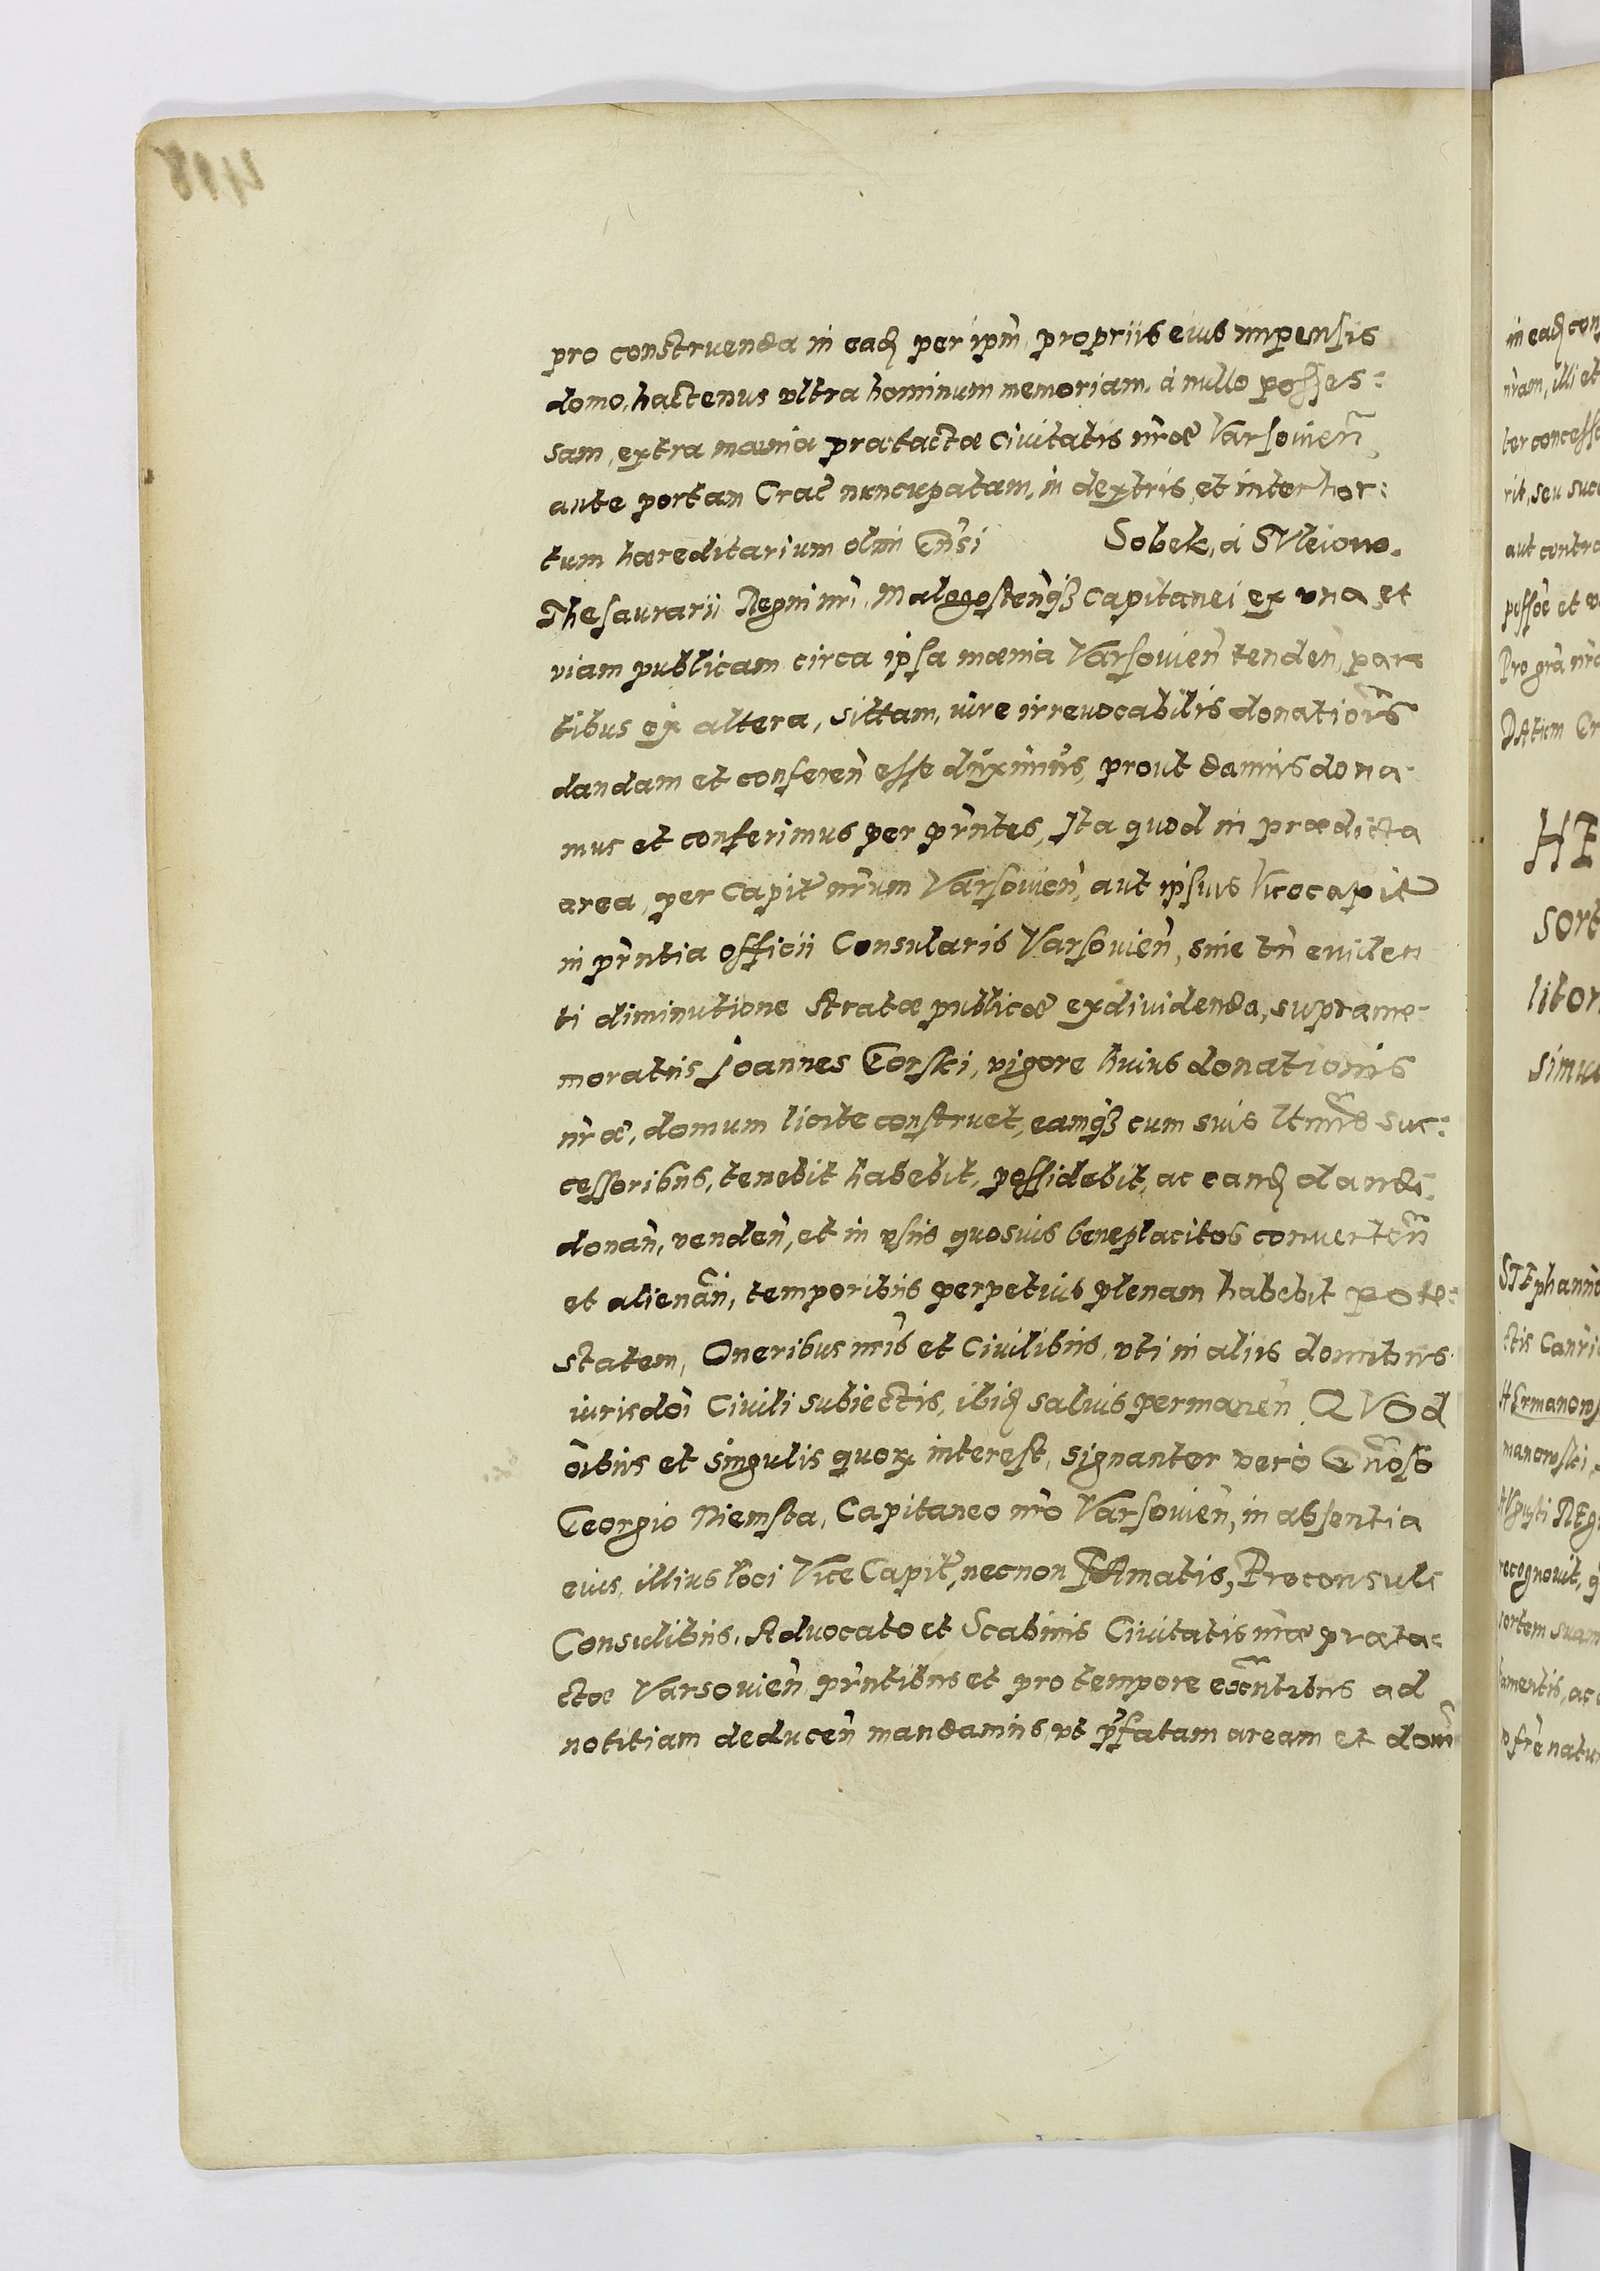 pro construenda in ead per ipm̃ propriis eius impensis
domo, hactenus vltra hominum memoriam, à nullo posses:
sam, extra mœnia prætactæ Ciuitatis nr̃æ Varsouien̄
ante portam Crac̃ nuncupatam, in dextris, et inter hor:
tum hæreditarium olim Gn̄si Sobek, à Suleiow.
Thesaurarij Regni nr̃i, Malogosten̄q3 Capitanei ex vna et
viam publicam circa ipsa mœnia Varsouien̄ tenden̄, par=
tibus ex altera, sittam, iure irreuocabilis donation̄is
dandam et conferen̄ esse duximus, prout damus dona-
mus et conferimus per pn̄tes, Ita quod in prædicta
area, per Capit nr̃um Varsouien̄, aut ipsius Vicecapit
in pn̄tia officii Consularis Varsouien̄, sine tn̄ euiden
ti diminutione stratæ publicæ exdiuidenda, suprame-
moratus Joannes Gorski, vigore huius donationis
nr̃æ, domum licite construet, eamq3 cum suis ltimis suc:
cessoribus, tenebit habebit, possidebit, ac eand dandi,
donan̄, venden̄, et in vsus quosuis beneplacitos conuerten̄
et alienan̄di, temporibus perpetuis plenam habebit pote=
statem, Oneribus nr̃is et Ciuilibus, vti in aliis domibus
iurisdoi Ciuili subiectis, ibid saluis permanen̄ QVOd
oibus et singulis quor interest, signanter vero Gn̄oso
Georgio Niemsta, Capitaneo nr̃o Varsouien̄, in absentia
eius, illius loci Vice Capit, necnon FAmatis, Proconsuli
Consulibus, Aduocato et Scabinis Ciuitatis nr̃æ præta=
ctæ Varsouien̄ pn̄tibus et pro tempore exn̄tibus ad
notitiam deducen̄ mandamus, vt pfatam aream et dom̄